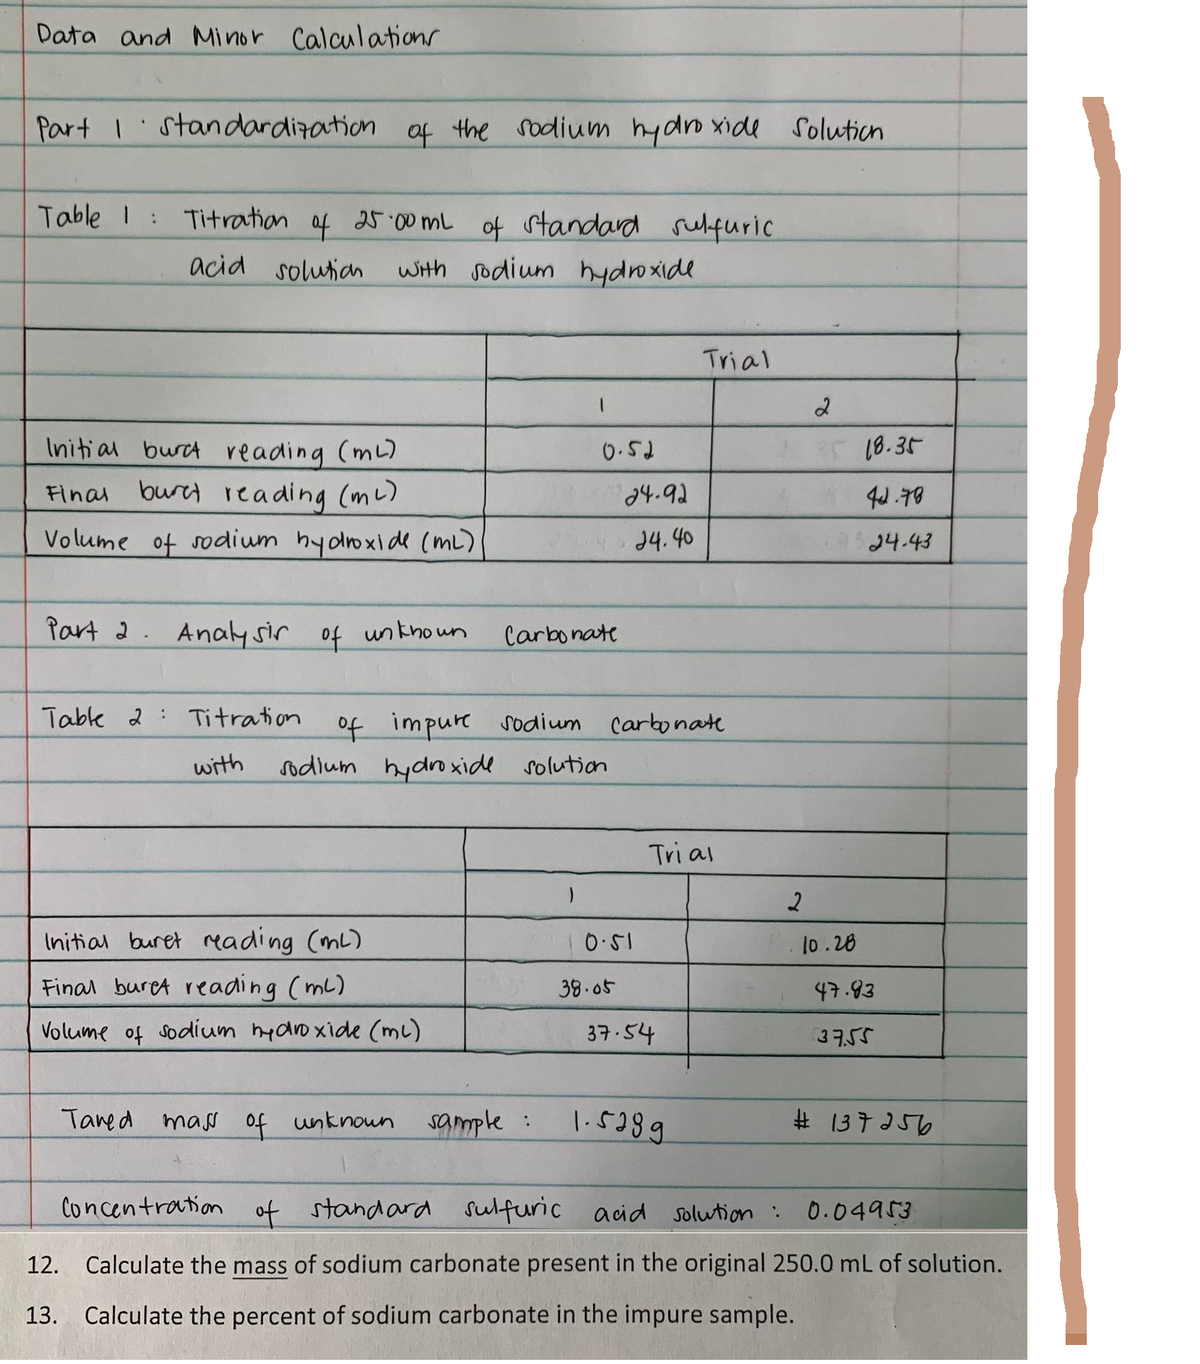 Data and Minor Calculations
Part 1 : Standardization of the sodium hydroxide solution
Table 1 : Titration of 25.00 mL of standard sulfuric
acid solution with sodium hydroxide
Trial
1 2
Initial buret reading (mL) 0.52 18.35
Final buret reading (mL) 24.92 42.78
Volume of sodium hydroxide (mL) 24.40 24.43
Part 2. Analysis of unknown carbonate
Table 2 : Titration of impure sodium carbonate
with sodium hydroxide solution
Trial
1 2
Initial buret reading (mL) 0.51 10.28
Final buret reading (mL) 38.05 47.83
Volume of sodium hydroxide (mL) 37.54 37.55
Tared mass of unknown sample : 1.528g # 137256
Concentration of standard sulfuric acid solution : 0.04953
12. Calculate the mass of sodium carbonate present in the original 250.0 mL of solution.
13. Calculate the percent of sodium carbonate in the impure sample.